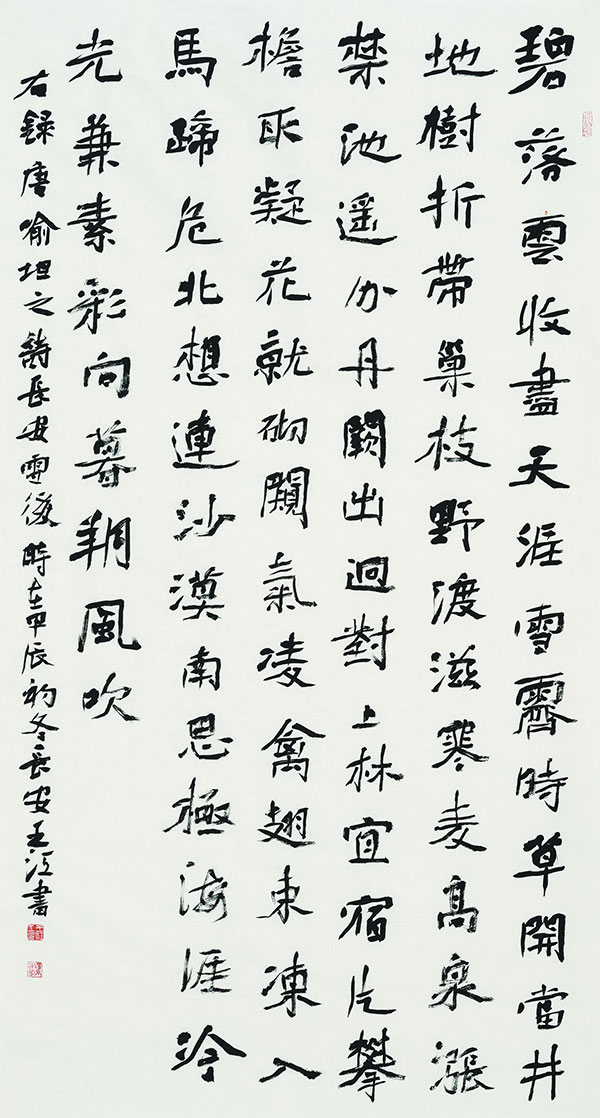 碧落雲收盡天涯雪霽時草開當井
地樹折帶巢枝野渡滋寒麦高泉漲
禁池遥分丹闕出迥對上林宜宿片攀
檐取凝花就砌闚氣凌禽翅束凍入
馬蹄危北想連沙漠南思極海涯冷
光兼素彩向暮朔風吹
右録唐喻坦之詩長安雪後時在甲辰初冬長安王書